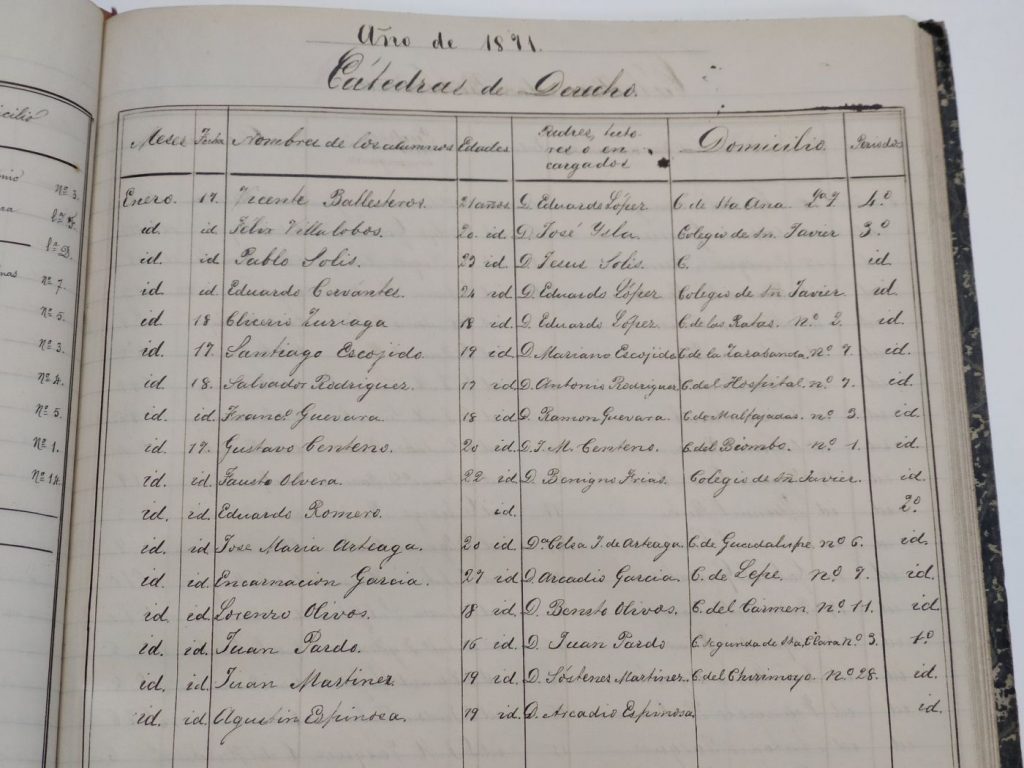 Año de 1891.
Cátedras de Derecho.
Meses Fecha Nombres de los alumnos Edades Padres, tuto
res o en
cargados Domicilio Periodos
Enero. 17. Vicente Ballesteros. 21 años. D. Eduardo López C. de Sta Ana. 4.º
id. id. Felix Villalobos. 20 id. D. José Ysla Colegio de Sn. Javier 3.º
id. id Pablo Solis. 23 id. D. Jesus Solis. C. id.
id. id Eduardo Cervantes. 24 id D. Eduardo López Colegio de Sn Javier. id.
id. 18 Clicerio Zuriaga 18 id D. Eduardo López. C. de las Ratas. nº 2. id.
id. 17. Santiago Escojido. 19 id. D. Mariano Escojido C. de la Zarabanda. nº 7. id.
id. 18. Salvador Rodriguez. 17 id D. Antonio Rodriguez C. del Hospital. nº 7. id.
id. id. Francº Guevara. 18 id D. Ramon Guevara. C. de Malfajadas. nº 3. id.
id. 17. Gustavo Centeno. 20 id D. J. M. Centeno. C. del Biombo. nº 1. id.
id. id. Fausto Olvera. 22 id D. Benigno Frias. Colegio de Sn Javier. id.
id. id. Eduardo Romero. id. 2º
id. id Jose Maria Arteaga. 20 id. Dª Celsa J. de Arteaga. C. de Guadalupe. nº 6. id.
id. id. Encarnación Garcia. 27 id D. Arcadio Garcia. C. de Lepe. nº 7. id.
id. id. Lorenzo Olivos. 18 id. D. Benito Olivos. C. del Carmen. nº 11. id
id. id. Juan Pardo. 16 id. D. Juan Pardo C. Segunda de Sta. Clara nº 3. 1º
id. id. Juan Martinez 19 id. D. Sóstenes Martinez. C. del Chirimoyo. nº 28. id.
id. id. Agustin Espinosa. 19 id. D. Arcadio Espinosa id.
nº 3.
nº 7.
nº 5.
nº 3.
nº 4.
nº 5.
nº 1.
nº 14.